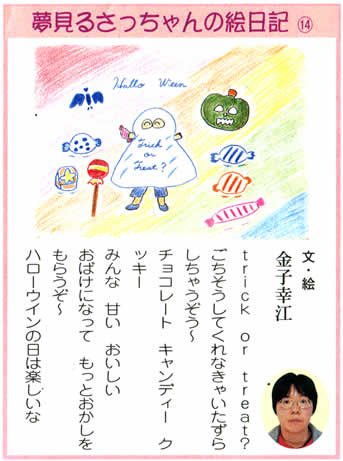 夢見るさっちゃんの絵日記 ⑭
Hallo Ween
Trick
or
Treat?
文・絵
金子幸江
trick or treat?
ごちそうしてくれなきゃいたずら
しちゃうぞう〜
チョコレート キャンディー ク
ッキー
みんな 甘い おいしい
おばけになって もっとおかしを
もらうぞ〜
ハローウインの日は楽しいな